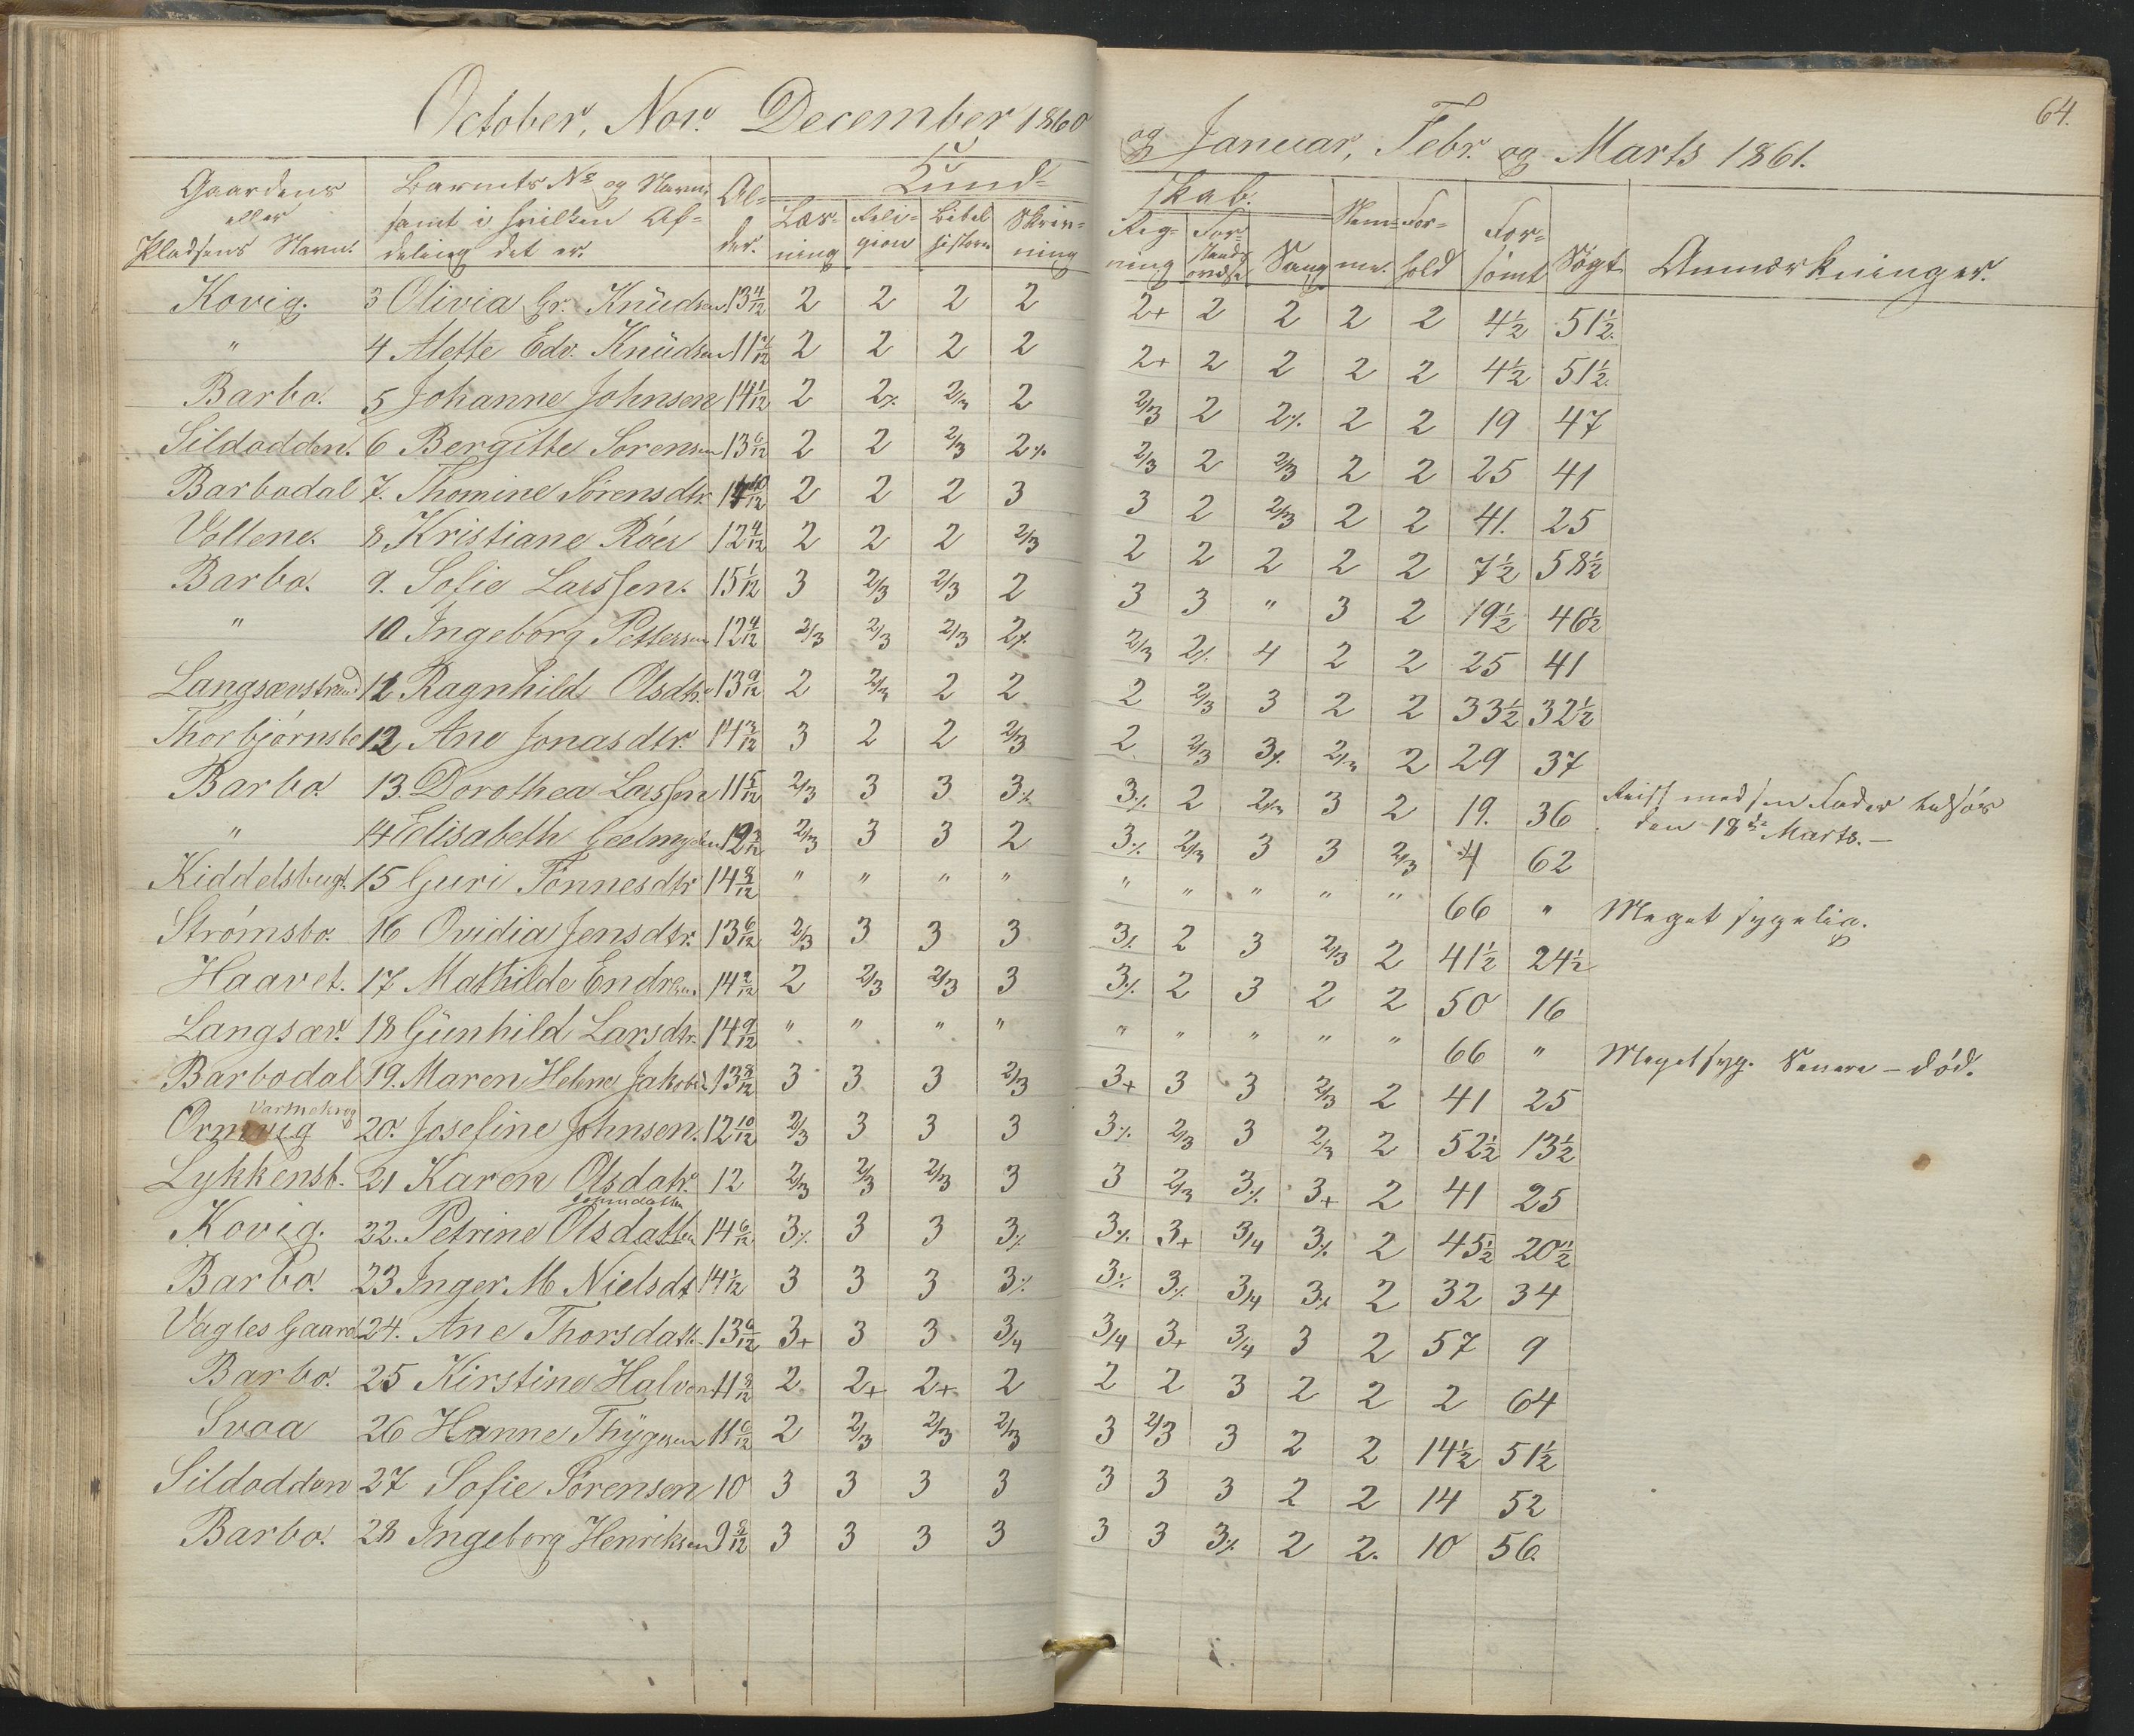 October, Nov. December 1860
og Januar, Febr. og Marts 1861.
64.
Gaardens eller Pladsens Navn. | Barnets No og Navn, samt i hvilken Afdeling det er. | Alder. | Kund-
skab.
Læsning | Religion | Bibelhistorie | Skrivning | Regning | Forstandsøvelse | Sang | Nemme. | Forhold | Forsømt | Søgt | Anmærkninger.
Kovig. 3 Olivia Gr. Knüdsen 13 4/12 2 2 2 2 2+ 2 2 2 2 4½ 51½.
" 4 Alette Edv. Knüdsen 11 2 2 2 2 2+ 2 2 2 2 4½ 51½.
Barbo. 5 Johanne Johnsen 14 1/12 2 2% 2/3 2 2/3 2 2% 2 2 19 47
Sildodden. 6 Bergitte Sorensen 13 6/12 2 2 2/3 2% 2/3 2 2/3 2 2 25 41
Barbodal 7. Thomine Sörensdtr. 14 10/12 2 2 2 3 3 2 2/3 2 2 41. 25
Vollene. 8 Kristiane Róer 12 4/12 2 2 2 2/3 2 2 2 2 2 7½ 58½
Barbo. 9. Sofie Larssen. 15 1/12 3 2/3 2/3 2 3 3 " 3 2 19½ 46½
" 10 Ingeborg Pettersen 12 4/12 2/3 2/3 2/3 2% 2/3 2% 4 2 2 25 41
Langsævstrand 11 Ragnhild Olsdtr. 13 9/12 2 2/3 2 2 2 2/3 3 2 2 33½ 32½
Thorbjørnsbo 12 Ane Jonasdtr. 14 3/12 3 2 2 2/3 2 2/3 3% 2/3 2 29 37
Barbo. 13. Dorothea Larssen 11 5/12 2/3 3 3 3% 3% 2 2/3 3 2 19. 36 Reist med sin Fader
den 18de Marts. —
" 14 Elisabeth Geelmuyden 12 2/3 3 3 2 3% 2/3 3 3 2/3 4 62
Kiddelsbugt. 15 Guri Tönnesdtr 14 8/12 " " " " " " " " " 66 " Meget sygelig.
Strømsbo. 16 Ovidia Jensdtr. 13 6/12 2/3 3 3 3 3% 2 3 2/3 2 41½ 24½
Haavet. 17 Mathilde Endresen 14 2/12 2 2/3 2/3 3 3% 2 3 2 2 50 16
Langsæv. 18 Günhild Larsdtr. 14 9/12 " " " " " " " " " 66 " Meget syg. Senere – død.
Barbodal 19. Maren Helene Jakobsd. 13 8/12 3 3 3 2/3 3+ 3 3 2/3 2 41 25
Varmekrog
Ormvig 20. Josefine Johnsen. 12 10/12 2/3 3 3 3 3% 2/3 3 2/3 2 52½ 13½
Lykkensb. 21 Karen Olsdatr. 12 2/3 2/3 2/3 3 3 2/3 3% 3+ 2 41 25
Kovig. 22. Petrine Olsdatter 14 6/12 3% 3 3 3% 3% 3+ 3/4 3% 2 45½ 20½
Barbo. 23 Inger M Nielsdt 14 3 3 3 3% 3% 3% 3/4 3% 2 32 34
Vagles Gaard 24. Ane Thorsdatt. 13 3+ 3 3 3/4 3/4 3+ 3/4 3 2 57 9
Barbo. 25 Kirstine Halvors. 11 8/12 2 2+ 2+ 2 2 2 3 2 2 2 64
Svaa 26 Hanne Thygesen 11 6/12 2 2/3 2/3 2/3 3 2/3 3 2 2 14½ 51½
Sildodden 27 Sofie Sörensen 10 3 3 3 3 3 3 3 2 2 14 52
Barbo. 28 Ingeborg Henriksen 9 3 3 3 3 3 3 3% 2 2. 10 56.